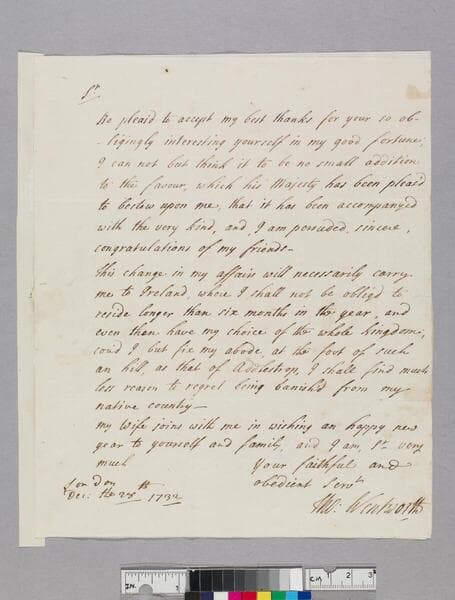 Sr
Be pleas'd to accept my best thanks for your so ob-
-ligingly interesting yourself in my good fortune;
I can not but think it to be no small addition
to the favour, which his Majesty has been pleas'd
to bestow upon me, that it has been accompanyed
with the very kind, and, I am persuaded, sincere,
congratulations of my friends-
This change in my affairs will necessarily carry
me to Ireland, where I shall not be oblig'd to
reside longer than six months in the year, and
even then have my choice of the whole kingdom;
cou'd I but fix my abode, at the foot of such
an hill, as that of Addlestrop, I shall find much
less reason to regret being banish'd from my
native country-
my wife joins with me in wishing an happy new
year to yourself and family, and I am, Sr very
much your faithful and
London obedient Servt
Dec: the 28th 1732
Tho: Wentworth
IN. 1
CM 1 2 3